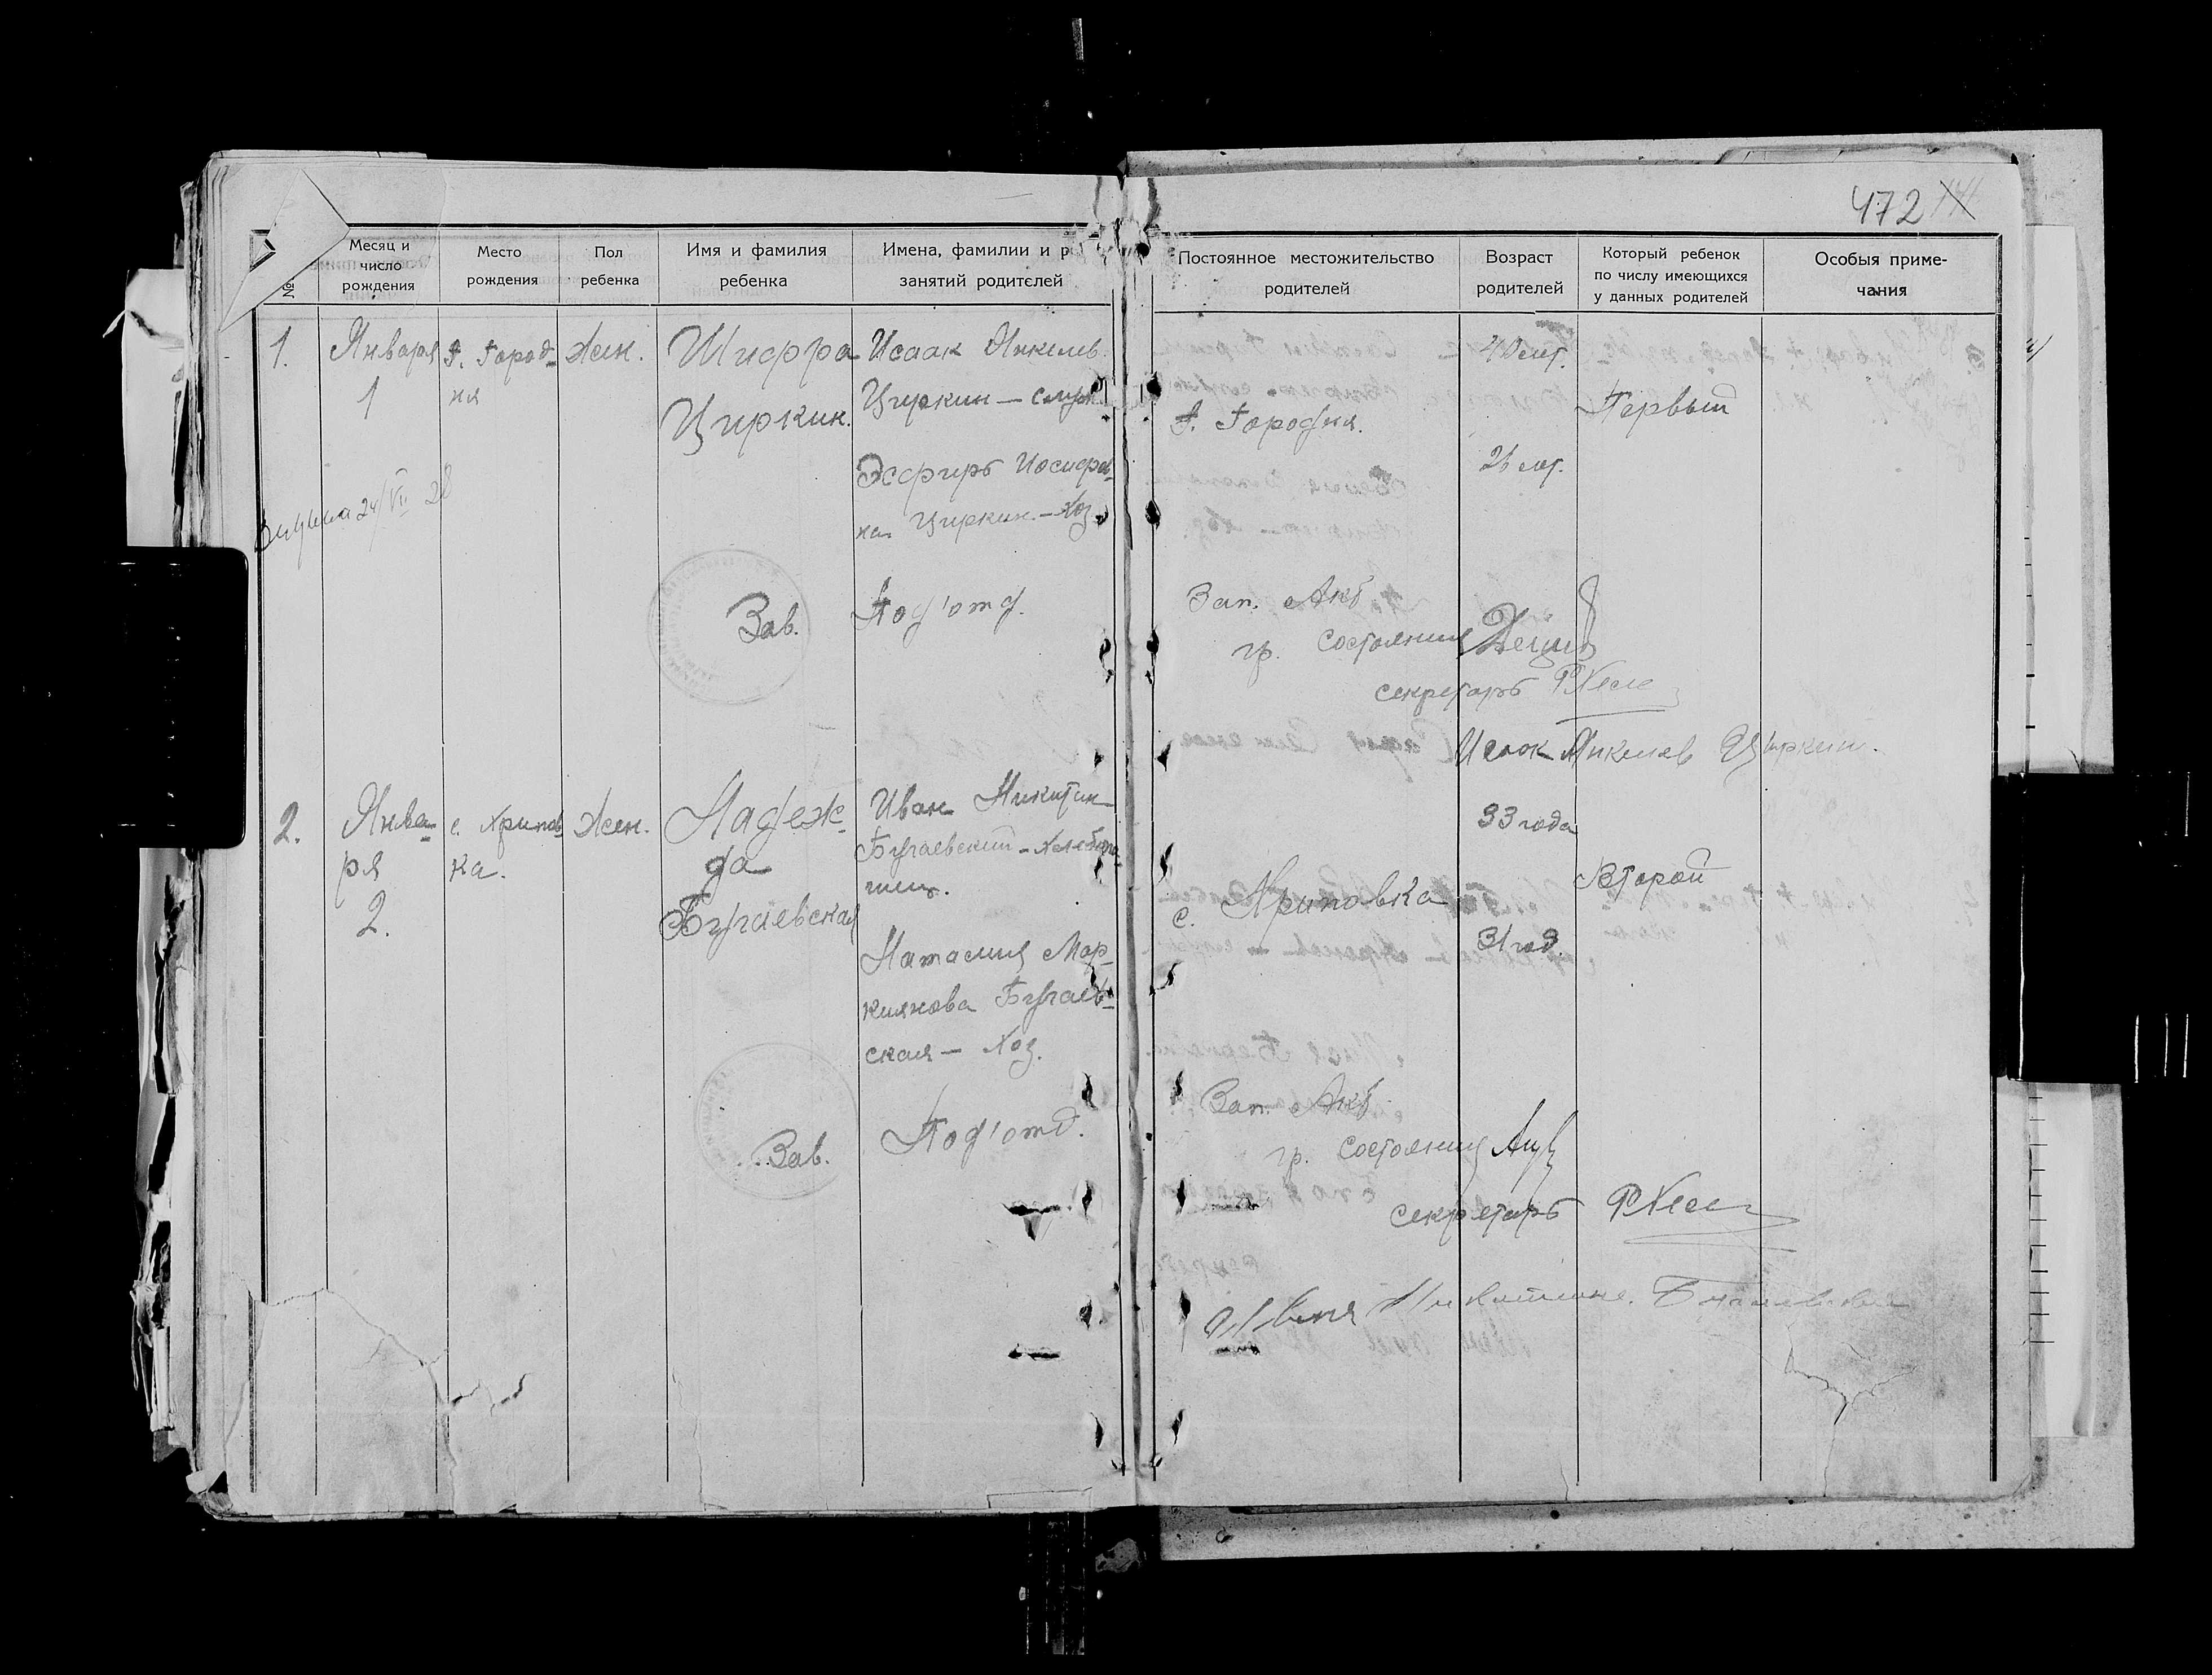 472
№
Месяц и
число
рождения
Место
рождения
Пол
ребенка
Имя и фамилия
ребенка
Имена, фамилии и р
занятий родителей
Постоянное местожительство
родителей
Возраст
родителей
Который ребенок
по числу имеющихся
у данных родителей
Особыя приме-
чания
1.
Января
1
г. Город-
ня
Жен.
Шифра
Циркин.
Исаак Янкелев.
Циркин — служ.
Эсфирь Иосифов-
на Циркин. — Хоз.
г. Городня.
40 лет.
26 лет.
Первый
24/VII 28
Зав.
Под'отд.
Зап. Акт
гр. состояния
секретарь
Исаак Янкелев Циркин.
2.
Янва-
ря
2.
с. Хрипов-
ка.
Жен.
Надеж-
да
Бугаевская
Иван Никитин
Бугаевский - хлебопа-
шец.
Наталия Мар-
кианова Бугаев-
ская — Хоз.
с. Хриповка
33 года
31 год.
Второй
Зав.
Под'отд.
Зап. Акт.
гр. состояния
секретарь